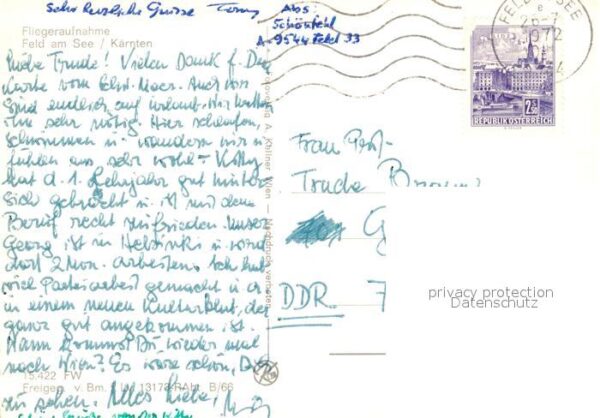 Sehr herzliche Grüsse Tony
Abs
Schönfeld
A-9544 Feld 33
Fliegeraufnahme
Feld am See / Kärnten
FELD AM SEE
26.-7
1972
REPUBLIK ÖSTERREICH
Liebe Trude! Vielen Dank f. Deine
Karte vom Schw. Meer. Auch wir
sind endlich auf Urlaub. Wir hatten
ihn sehr nötig. Hier schlafen,
schwimmen u. wandern wir u.
fühlen uns sehr wohl - Kitty
hat d. 1. Lehrjahr gut hinter
sich gebracht u. ist mit dem
Beruf recht zufrieden. Unser
Georg ist in Helsinki u. wird
dort 2 Mon. arbeiten. Ich hab
viel Parteiarbeit gemacht u. a.
in einem neuen Kulturblatt, das
ganz gut angekommen ist.
Wann kommst Du wieder mal
nach Wien? Es wäre schön, Dich
zu sehen. Alles Liebe,
Frau Prof.
Trude
G
DDR 7
privacy protection
Datenschutz
15.422 FW
Freigeg. v. Bm. 13172-RAbt. B/66